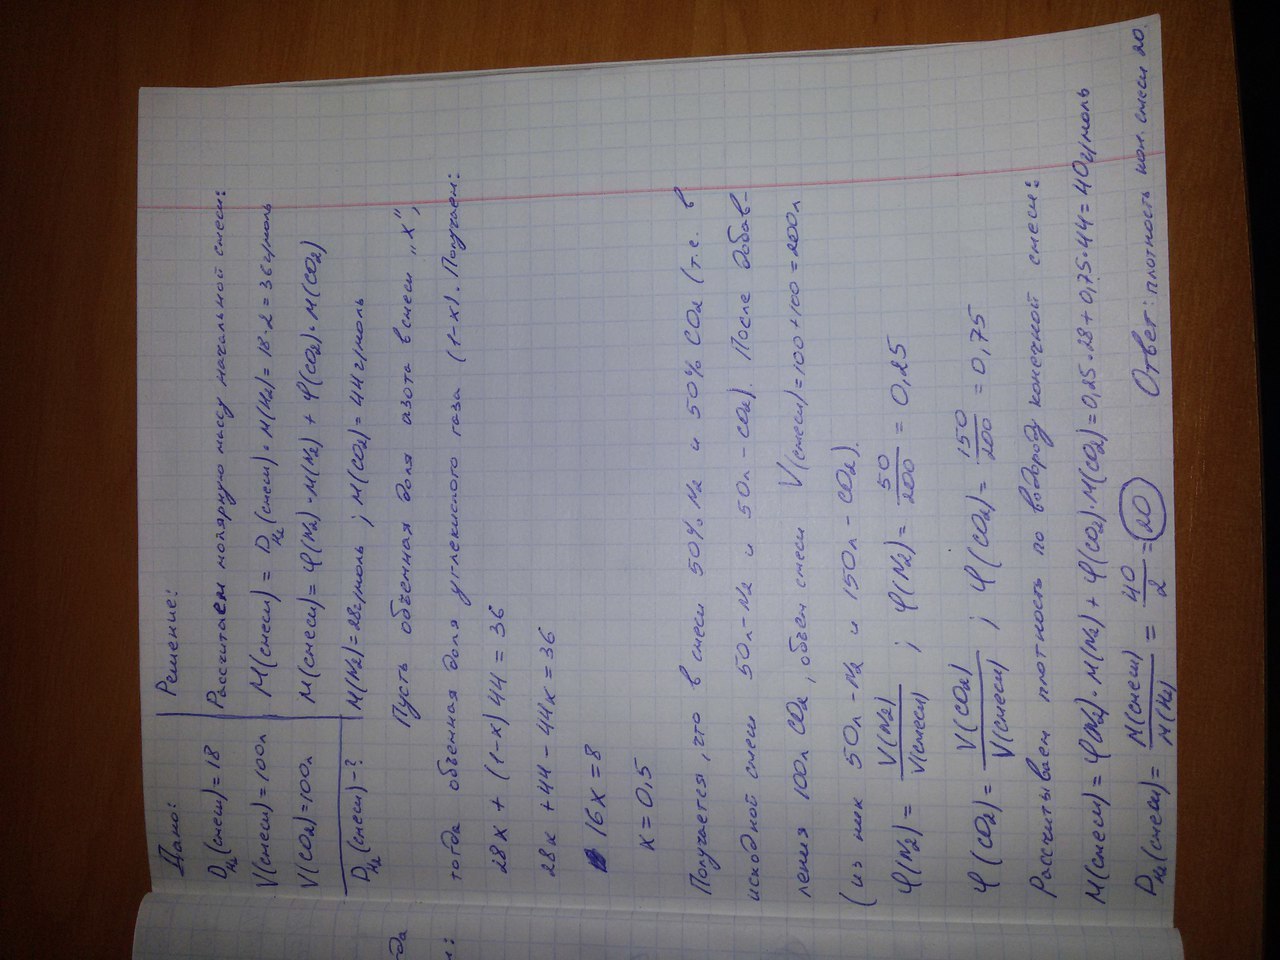 Дано:
D_H₂(смеси) = 18
V(смеси) = 100л
V(CO₂) = 100л
D_H₂(смеси) - ?
Решение:
Рассчитаем молярную массу начальной смеси:
M(смеси) = D_H₂(смеси) · M(H₂) = 18 · 2 = 36 г/моль
M(смеси) = φ(N₂) · M(N₂) + φ(CO₂) · M(CO₂)
M(N₂) = 28 г/моль ; M(CO₂) = 44 г/моль
Пусть объёмная доля азота в смеси „x",
тогда объёмная доля углекислого газа (1-x). Получаем:
28x + (1-x) 44 = 36
28x + 44 - 44x = 36
16x = 8
x = 0,5
Получается, что в смеси 50% N₂ и 50% CO₂ (т.е. в
исходной смеси 50л - N₂ и 50л - CO₂). После добав-
ления 100л CO₂, объём смеси V(смеси) = 100 + 100 = 200л
(из них 50л - N₂ и 150л - CO₂).
φ(N₂) = V(N₂)/V(смеси) ; φ(N₂) = 50/200 = 0,25
φ(CO₂) = V(CO₂)/V(смеси) ; φ(CO₂) = 150/200 = 0,75
Рассчитываем плотность по водороду конечной смеси:
M(смеси) = φ(N₂) · M(N₂) + φ(CO₂) · M(CO₂) = 0,25 · 28 + 0,75 · 44 = 40 г/моль
D_H₂(смеси) = M(смеси)/M(H₂) = 40/2 = 20
Ответ: плотность кон. смеси 20.